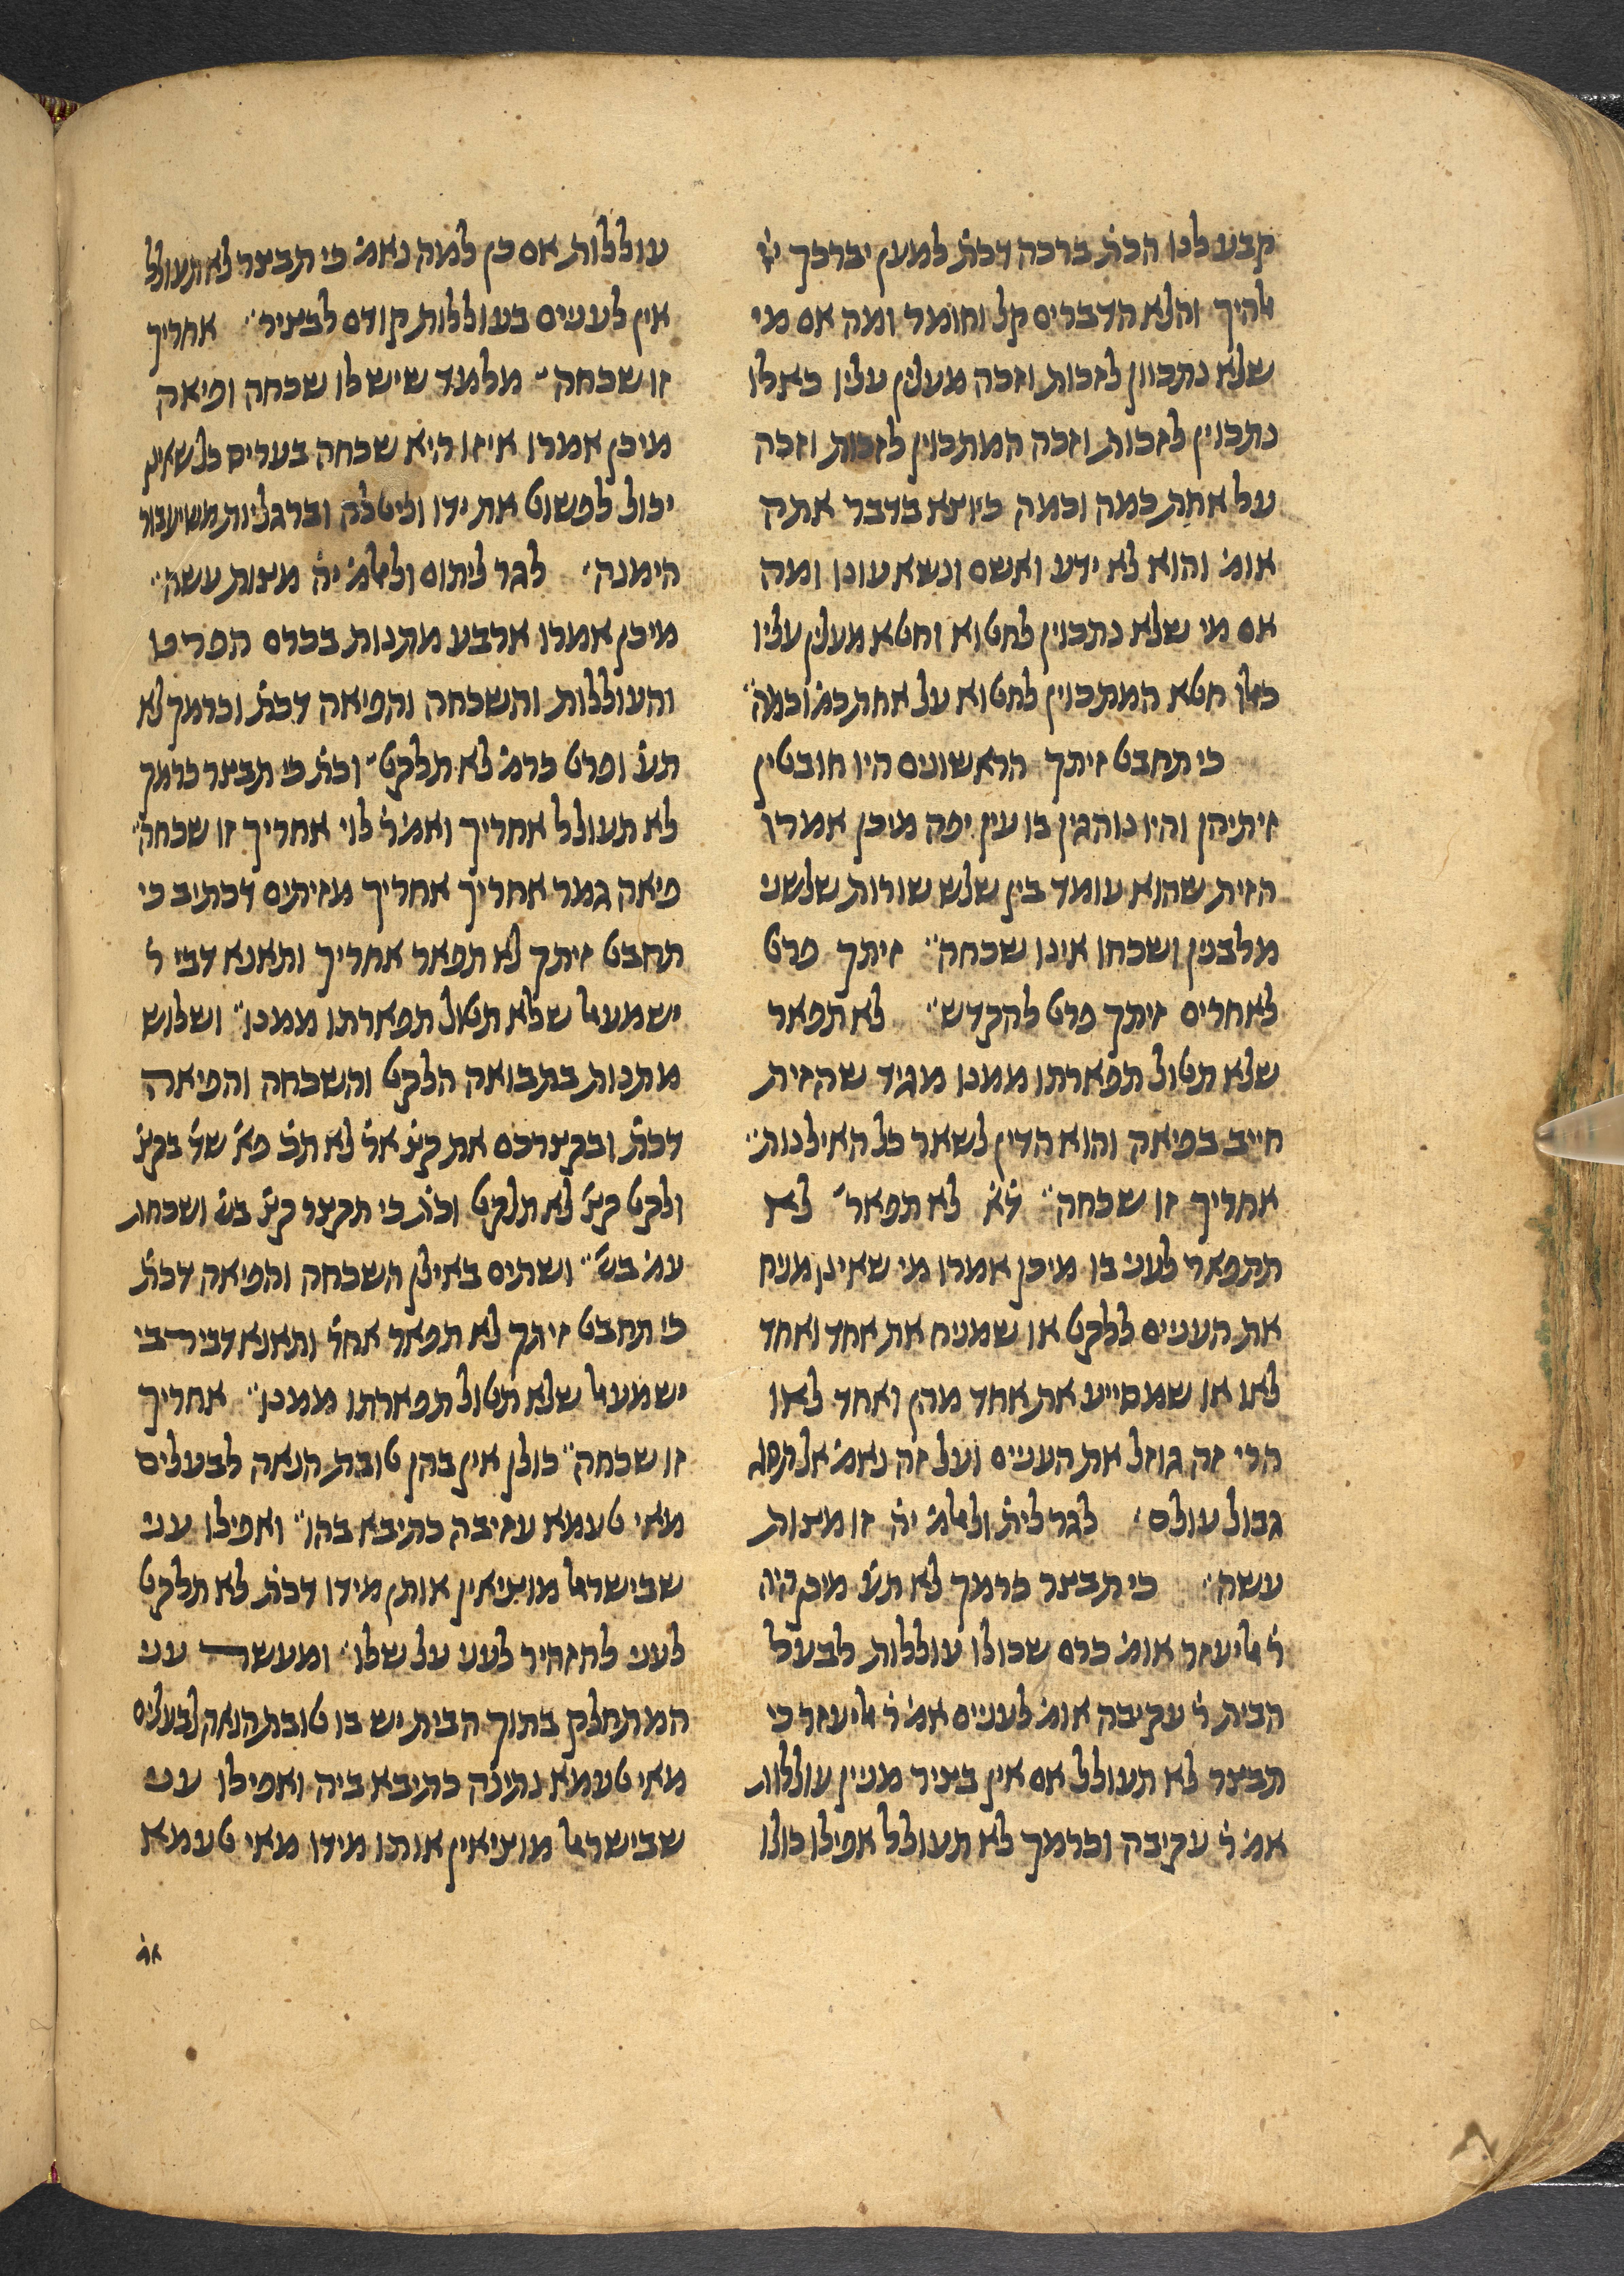 קבע לנו הכת׳ ברכה דכת׳ למען יברכך יי׳
אלהיך והלא הדברים קל וחומר ומה אם מי
שלא נתכוון לזכות וזכה מעלין עליו כאלו
נתכוין לזכות וזכה המתכוין לזכות וזכה
על אחת כמה וכמה כיוצא בדבר אתה
אומ׳ והוא לא ידע ואשם ונשא עונו ומה
אם מי שלא נתכוין לחטוא וחטא מעלין עליו
כאלו חטא המתכוין לחטוא על אחת כמ׳ וכמה״
כי תחבט זיתך הראשונים היו חובטין
זיתיהן והיו נוהגין בו עין יפה מיכן אמרו
הזית שהוא עומד בין שלש שורות של שני
מלבנין ושכחו אינו שכחה״ זיתך פרט
לאחרים זיתך פרט להקדש״ לא תפאר
שלא תטול תפארתו ממנו מגיד שהזית
חייב בפיאה והוא הדין לשאר כל האילנות״
אחריך זו שכחה״ ד׳א׳ לא תפאר׳ לא
תתפאר לעני בו מיכן אמרו מי שאינו מניח
את העניים ללקט או שמניח את אחד ואחד
לאו או שמסייע את אחד מהן ואחד לאו
הרי זה גוזל את העניים ועל זה נאמ׳ אל תסג
גבול עולם׳ לגר לית׳ ולאלמ׳ יה׳ זו מצות
עשה״ כי תבצר כרמך לא תע׳ מיכן היה
ר׳ אליעזר אומ׳ כרם שכולו עוללות לבעל
הבית ר׳ עקיבה אומ׳ לעניים אמ׳ ר׳ אליעזר כי
תבצר לא תעולל אם אין בציר מניין עוללות
אמ׳ ר׳ עקיבה וכרמך לא תעולל אפילו כולו
עוללות אם כן למה נאמ׳ כי תבצר לא תעולל
אין לעניים בעוללות קודם לבציר״ אחריך
זו שכחה״ מלמד שיש לו שכחה ופיאה
מיכן אמרו איזו היא שכחה בעריס כל שאינו
יכול לפשוט את ידו וליטלה וברגליות משיעבור
הימנה׳ לגר ליתום ולאלמ׳ יה׳ מצות עשה״
מיכן אמרו ארבע מתנות בכרם הפרט
והעוללות והשכחה והפיאה דכת׳ וכרמך לא
תע׳ ופרט כרמ׳ לא תלקט״ וכת׳ כי תבצר כרמך
לא תעולל אחריך ואמ׳ ר׳ לוי אחריך זו שכחה״
פיאה גמר אחריך אחריך מזיתים דכתיב כי
תחבט זיתך לא תפאר אחריך ותאנא דבי ר׳
ישמעאל שלא תטול תפארתו ממנו״ ושלוש
מתנות בתבואה הלקט והשכחה והפיאה
דכת׳ ובקצרכם את קצ׳ אר׳ לא תכ׳ פא׳ שד׳ בקצ׳
ולקט קצ׳ לא תלקט וכת׳ כי תקצר קצ׳ בש׳ ושכחת
עמ׳ בש׳״ ושתים באילן השכחה והפיאה דכת׳
כי תחבט זיתך לא תפאר אחר׳ ותאנא דבי רבי
ישמעאל שלא תטול תפארתו ממנו״ אחריך
זו שכחה״ כולן אין בהן טובת הנאה לבעלים
מאי טעמא עזיבה כתיבא בהו״ ואפילו עני
שבישראל מוציאין אותן מידו דכת׳ לא תלקט
לעני להזהיר לעני על שלו״ ומעשר עני
המתחלק בתוך הבית יש בו טובת הנאה לבעלים
מאי טעמא נתינה כתיבא ביה ואפילו עני
שבישראל מוציאין אותו מידו מאי טעמא